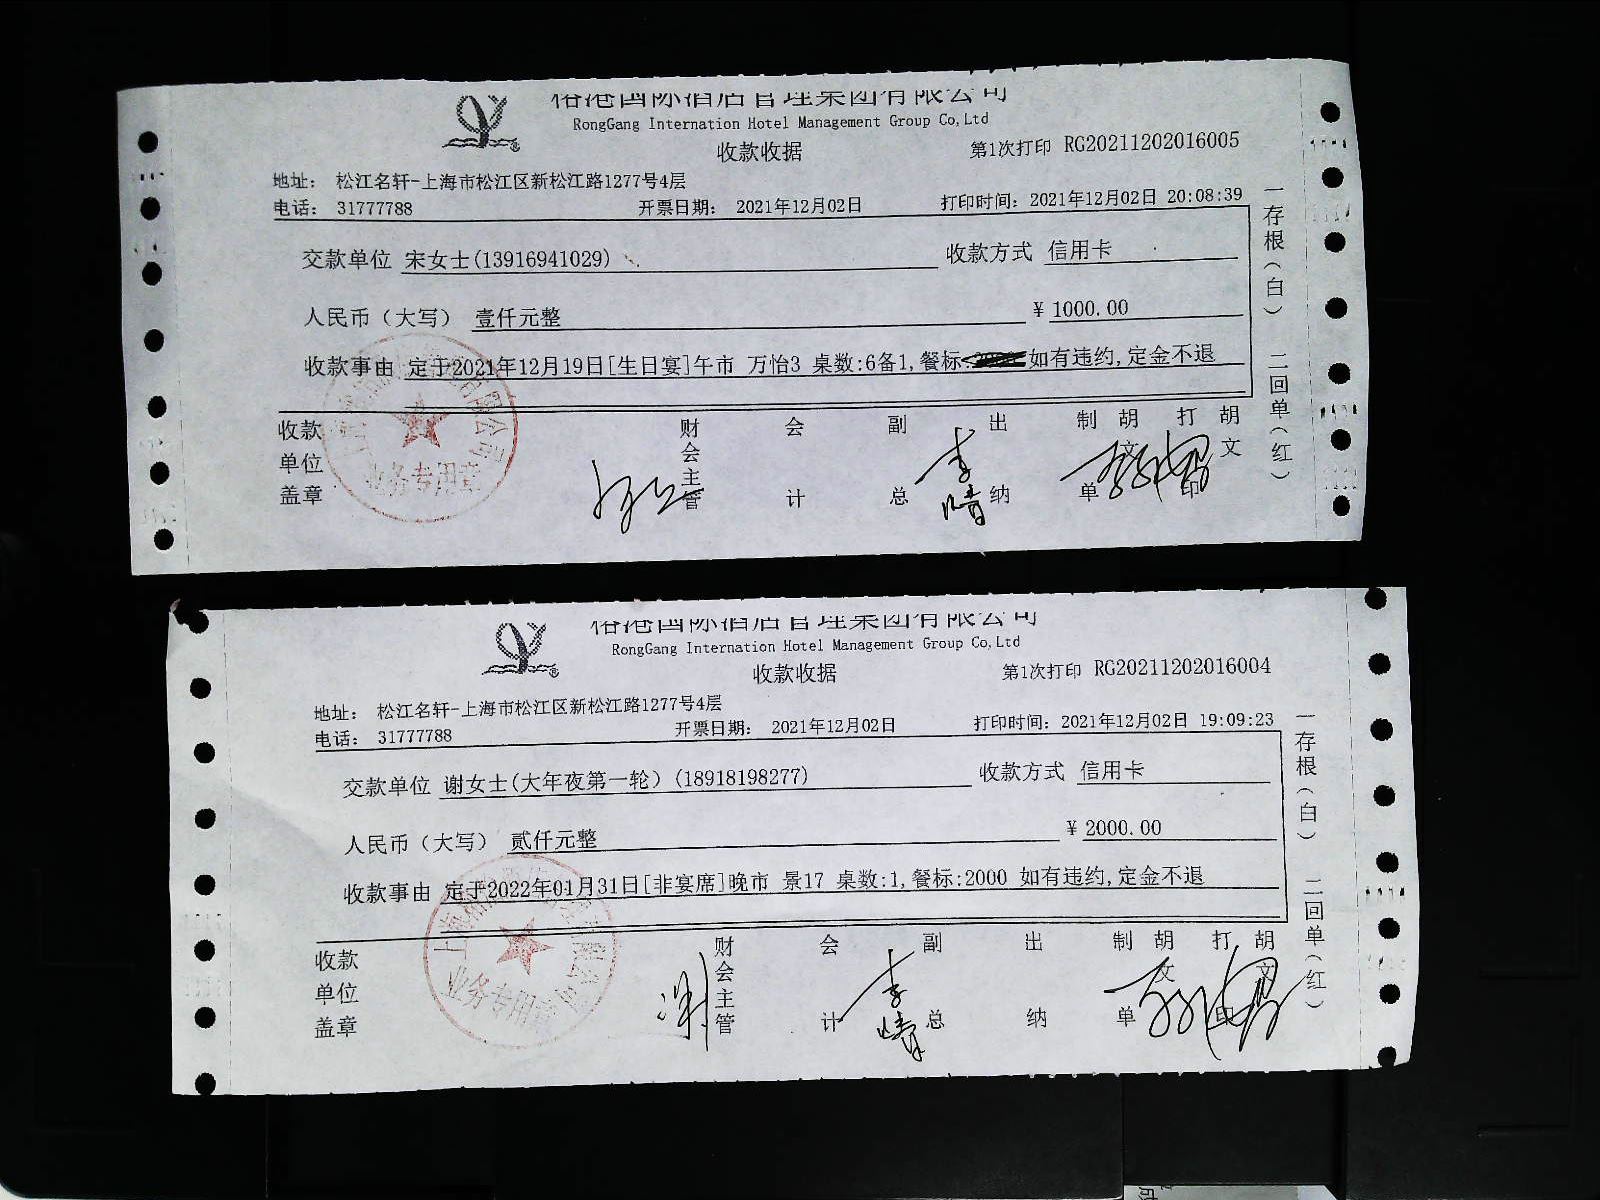 裕港国际酒店管理集团有限公司
RongGang Internation Hotel Management Group Co,Ltd
收款收据
第1次打印 RG20211202016005
地址: 松江名轩-上海市松江区新松江路1277号4层
电话: 31777788 开票日期: 2021年12月02日 打印时间: 2021年12月02日 20:08:39
交款单位 宋女士(13916941029) 收款方式 信用卡
人民币(大写) 壹仟元整 ¥ 1000.00
收款事由 定于2021年12月19日[生日宴]午市 万怡3 桌数:6备1,餐标: 如有违约,定金不退
一存根(白) 二回单(红)
收款单位盖章 财会主管 会计 副总 出纳 制单 胡文 打印 胡文
业务专用章
李晴
裕港国际酒店管理集团有限公司
RongGang Internation Hotel Management Group Co,Ltd
收款收据
第1次打印 RG20211202016004
地址: 松江名轩-上海市松江区新松江路1277号4层
电话: 31777788 开票日期: 2021年12月02日 打印时间: 2021年12月02日 19:09:23
交款单位 谢女士(大年夜第一轮)(18918198277) 收款方式 信用卡
人民币(大写) 贰仟元整 ¥ 2000.00
收款事由 定于2022年01月31日[非宴席]晚市 景17 桌数:1,餐标:2000 如有违约,定金不退
一存根(白) 二回单(红)
收款单位盖章 财会主管 会计 副总 出纳 制单 胡文 打印 胡文
业务专用章
李晴